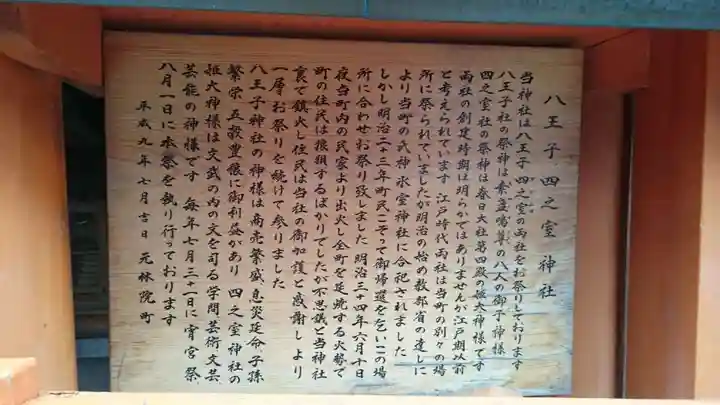 八王子四之室神社
当神社は八王子 四之室の両社をお祭りしております
八王子社の祭神は素盞鳴尊の八人の御子神様
四之室社の祭神は春日大社第四殿の姫大神様です
両社の創建時期は明らかではありませんが江戸期以前
と考えられています 江戸時代 両社は当町の別々の場
所に祭られていましたが明治の始め教部省の達しに
より当町の氏神 氷室神社に合祀されました
しかし明治二十三年町民こぞって御帰還をこいこの場
所に合わせお祭り致しました 明治三十四年六月十日
夜当町内の民家より出火し全町を延焼する火勢で
町の住民は狼狽するばかりでしたが不思議と当神社
裏で鎮火し住民は当社の御加護と感謝しより
一層お祭りを続けて参りました
八王子神社の神様は商売繁盛 息災延命 子孫
繁栄 五穀豊穣に御利益があり 四之室神社の
姫大神様は文武の内の文を司る学問 芸術 文芸
芸能の神様です 毎年七月三十一日に宵宮祭
八月一日に本祭を執り行っております
平成九年七月吉日 元林院町